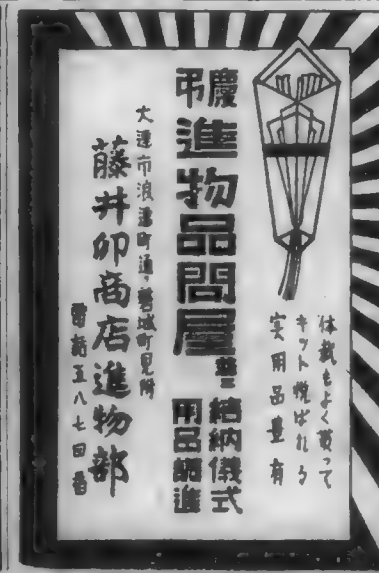 体裁もよく貰って
キット悦ばれる
実用品豊有
慶弔
進物品問屋
並ニ
結納儀式
用品調進
大連市浪速町通り磐城町見附
藤井卯商店進物部
電話五八七四番